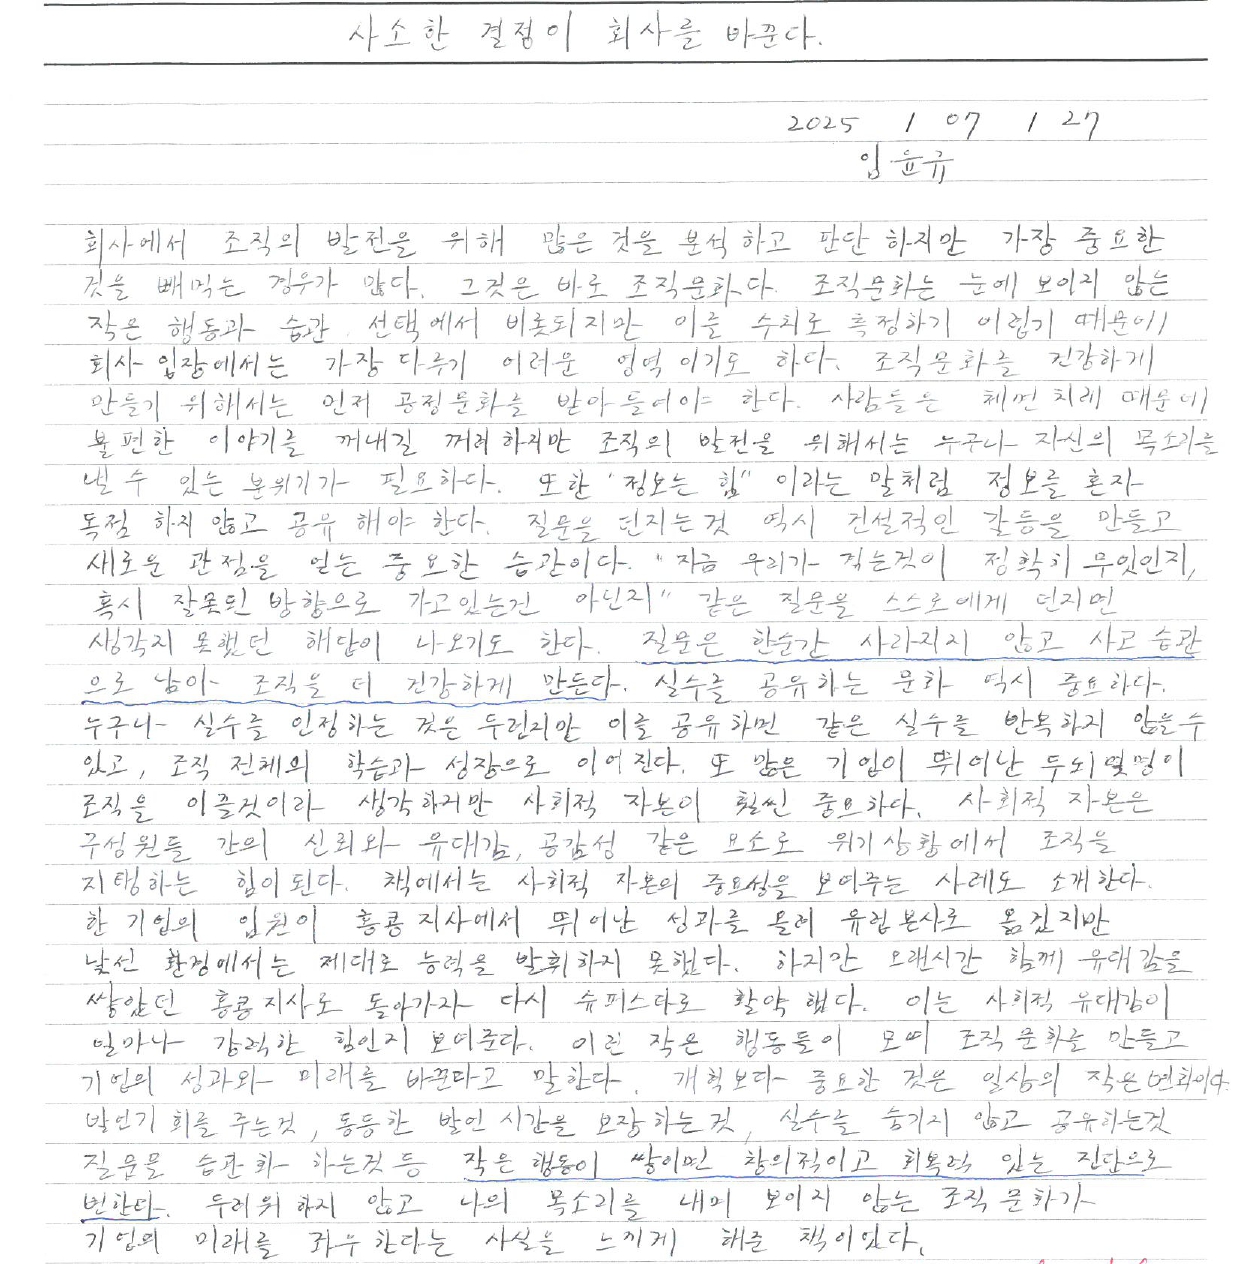 사소한 결정이 회사를 바꾼다.
2025 / 07 / 27
임윤규
회사에서 조직의 발전을 위해 많은 것을 분석하고 판단하지만 가장 중요한
것을 빼먹는 경우가 많다. 그것은 바로 조직문화다. 조직문화는 눈에 보이지 않는
작은 행동과 습관, 선택에서 비롯되지만 이를 수치로 측정하기 어렵기 때문에
회사 입장에서는 가장 다루기 어려운 영역이기도 하다. 조직문화를 건강하게
만들기 위해서는 먼저 공정문화를 받아들여야 한다. 사람들은 체면치레 때문에
불편한 이야기를 꺼내길 꺼려하지만 조직의 발전을 위해서는 누구나 자신의 목소리를
낼 수 있는 분위기가 필요하다. 또한 "정보는 힘" 이라는 말처럼 정보를 혼자
독점 하지 않고 공유 해야 한다. 질문을 던지는것 역시 건설적인 갈등을 만들고
새로운 관점을 얻는 중요한 습관이다. "지금 우리가 겪는것이 정확히 무엇인지,
혹시 잘못된 방향으로 가고있는건 아닌지" 같은 질문을 스스로에게 던지면
생각지 못했던 해답이 나오기도 한다. 질문은 한순간 사라지지 않고 사고 습관
으로 남아 조직을 더 건강하게 만든다. 실수를 공유하는 문화 역시 중요하다.
누구나 실수를 인정하는 것은 두렵지만 이를 공유하면 같은 실수를 반복하지 않을수
있고, 조직 전체의 학습과 성장으로 이어진다. 또 많은 기업이 뛰어난 두뇌몇명이
조직을 이끌것이라 생각하지만 사회적 자본이 훨씬 중요하다. 사회적 자본은
구성원들 간의 신뢰와 유대감, 공감성 같은 요소로 위기상황에서 조직을
지탱하는 힘이된다. 책에서는 사회적 자본의 중요성을 보여주는 사례도 소개한다.
한 기업의 임원이 홍콩지사에서 뛰어난 성과를 올려 유럽본사로 옮겼지만
낯선 환경에서는 제대로 능력을 발휘하지 못했다. 하지만 오랜시간 함께 유대감을
쌓았던 홍콩지사로 돌아가자 다시 슈퍼스타로 활약 했다. 이는 사회적 유대감이
얼마나 강력한 힘인지 보여준다. 이런 작은 행동들이 모여 조직문화를 만들고
기업의 성과와 미래를 바꾼다고 말한다. 개혁보다 중요한 것은 일상의 작은변화이다.
발언기회를 주는것, 동등한 발언 시간을 보장하는것, 실수를 숨기지 않고 공유하는것
질문을 습관화 하는것등 작은 행동이 쌓이면 창의적이고 회복력 있는 집단으로
변한다. 두려워하지 않고 나의 목소리를 내며 보이지 않는 조직문화가
기업의 미래를 좌우한다는 사실을 느끼게 해준 책이었다.